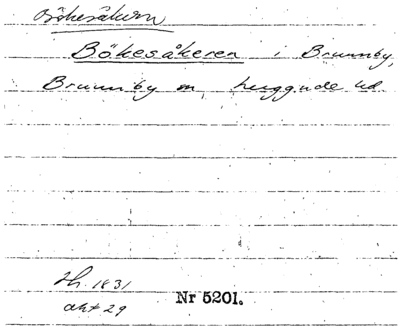 Bökesåkern
Bökesåkeren i Brunnby,
Brunnby sn, Luggude hd
Lh. 1831
akt 29
Nr 5201.